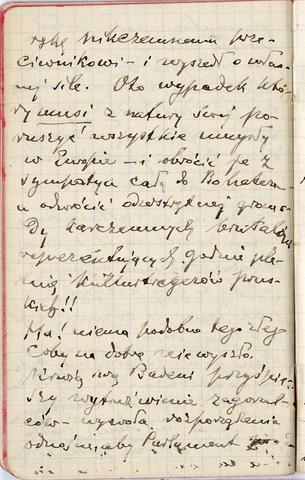 rękę nikczemnemu prze-
ciwnikowi - i wyszedł o włas-
nej sile. Oto wypadek któ-
ry musi z natury swej po-
ruszyć wszystkie umysły
w Europie - i obrócić je z
sympatyą całą do Bohatera -
a odwrócić od wstrętnej groma-
dy karczemnych brutalów
reprezentujących godnie ple-
mię Kulturtregerów prus-
kich!!
Ha! niema podobno tego złego
coby na dobre nie wyszło.
Krwią swą Badeni przypie-
czy wytrzeźwienie zagorzal-
ców - wywoła rozporządzenia
odnośne, aby Parlament